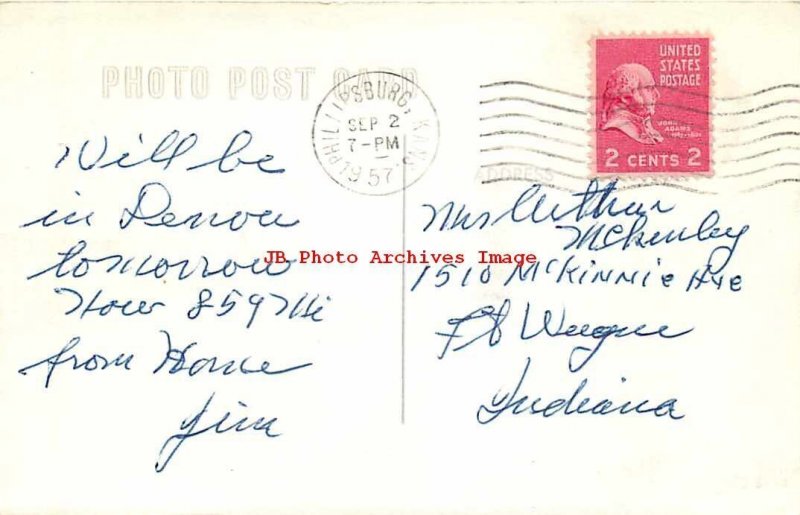 PHOTO POST CARD
PHILLIPSBURG, KANS.
SEP 2
7-PM
1957
UNITED
STATES
POSTAGE
JOHN
ADAMS
2 CENTS 2
ADDRESS
Will be
in Denver
tomorrow
Now 859 Mi
from Home
Jim
Mrs Arthur
McKinley
1510 McKinnie Ave
Ft Wayne
Indiana
JB Photo Archives Image